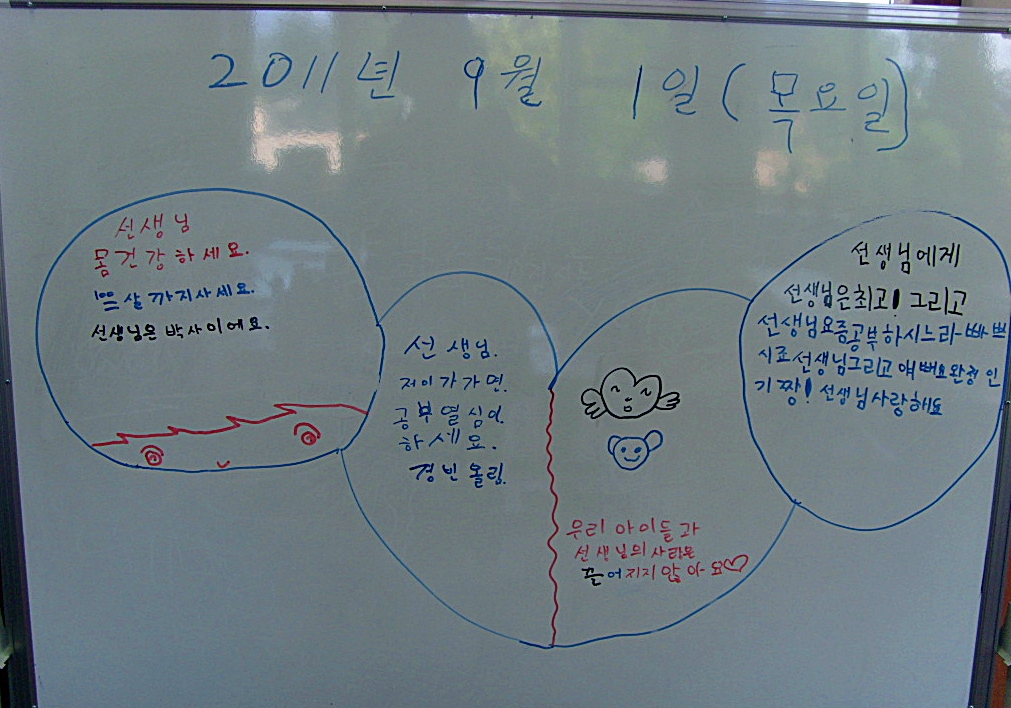 2011년 9월 1일(목요일)
선생님
몸건강하세요.
100살까지사세요.
선생님은 박사이에요.
선생님.
저이가가면.
공부열심이.
하세요.
경빈올림.
우리 아이들과
선생님의 사랑은
끈어지지 않아요♡
선생님에게
선생님은최고! 그리고
선생님요즘공부하시느라바쁘
시죠선생님그리고얘뻐요완정인
기짱! 선생님사랑해요